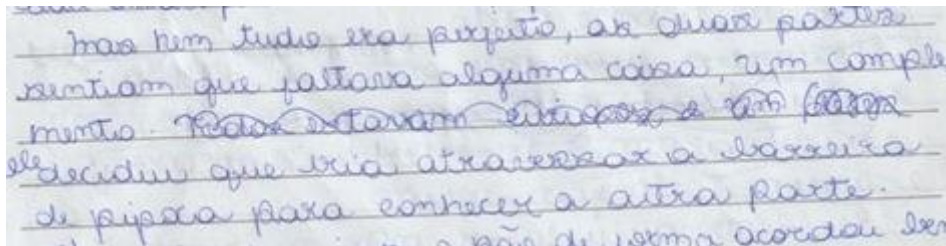 mas nem tudo era perfeito, as duas partes
sentiam que faltava alguma coisa, um comple
mento. Todos estavam curiosos e um
ele decidiu que iria atravessar a barreira
de pipoca para conhecer a outra parte.
pão de forma acordou